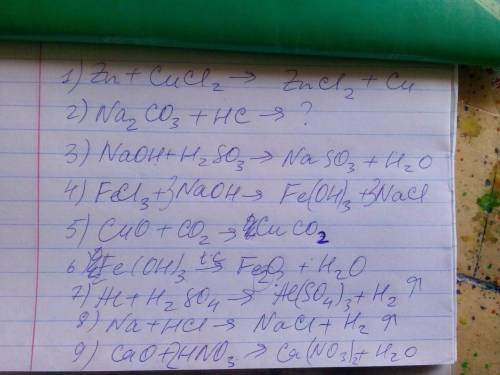 1) Zn + CuCl₂ → ZnCl₂ + Cu
2) Na₂CO₃ + HC → ?
3) NaOH + H₂SO₃ → NaSO₃ + H₂O
4) FeCl₃ + 3NaOH → Fe(OH)₃ + 3NaCl
5) CuO + CO₂ → CuCO₂
6) 2Fe(OH)₃ t°C→ Fe₂O₃ + H₂O
7) Al + H₂SO₄ → Al(SO₄)₃ + H₂ ↑
8) Na + HCl → NaCl + H₂ ↑
9) CaO + 2HNO₃ → Ca(NO₃)₂ + H₂O